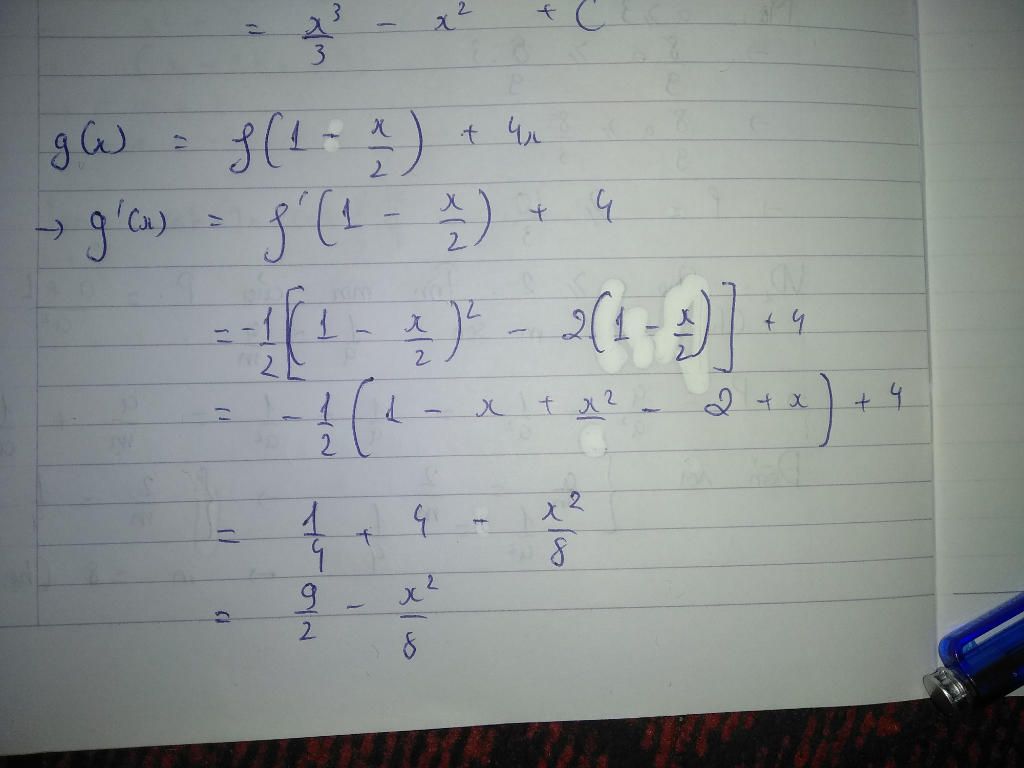 = x³/3 - x² + C
g(x) = f(1 - x/2) + 4x
→ g'(x) = f'(1 - x/2) + 4
= -1/2[(1 - x/2)² - 2(1 - x/2)] + 4
= -1/2(1 - x + x²/ - 2 + x) + 4
= 1/4 + 4 - x²/8
= 9/2 - x²/8